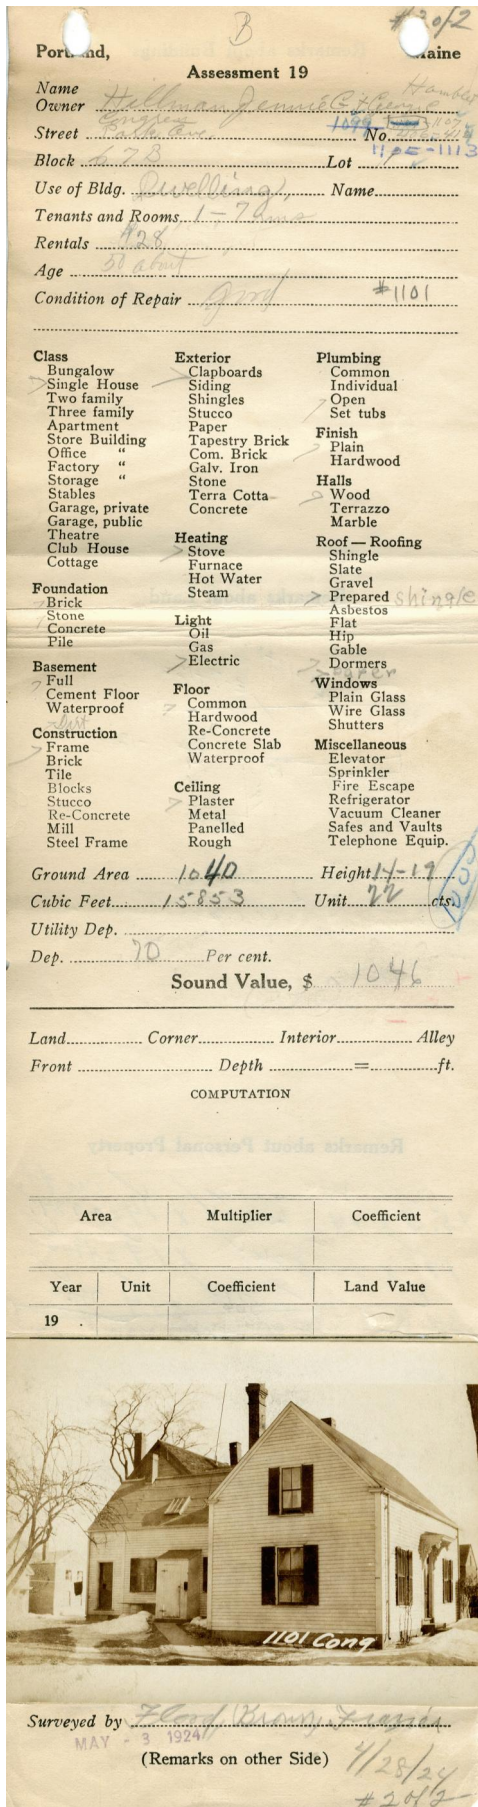 #2 of 2
B
Portland, Maine
Assessment 19
Name
Owner Hillman Jennie C.
Congress
Street Park Ave. 1099 No. 1107
1105-1113
Block 67B Lot
Use of Bldg. Dwelling, Name
Tenants and Rooms 1-7 rms
Rentals $28
Age 50 about
Condition of Repair good #1101
Class
Bungalow
Single House
Two family
Three family
Apartment
Store Building
Office "
Factory "
Storage "
Stables
Garage, private
Garage, public
Theatre
Club House
Cottage
Foundation
Brick
Stone
Concrete
Pile
Basement
Full
Cement Floor
Waterproof
Dirt
Construction
Frame
Brick
Tile
Blocks
Stucco
Re-Concrete
Mill
Steel Frame
Exterior
Clapboards
Siding
Shingles
Stucco
Paper
Tapestry Brick
Com. Brick
Galv. Iron
Stone
Terra Cotta
Concrete
Heating
Stove
Furnace
Hot Water
Steam
Light
Oil
Gas
Electric
Floor
Common
Hardwood
Re-Concrete
Concrete Slab
Waterproof
Ceiling
Plaster
Metal
Panelled
Rough
Plumbing
Common
Individual
Open
Set tubs
Finish
Plain
Hardwood
Halls
Wood
Terrazzo
Marble
Roof — Roofing
Shingle
Slate
Gravel
Prepared shingle
Asbestos
Flat
Hip
Gable
Dormers
Windows
Plain Glass
Wire Glass
Shutters
Miscellaneous
Elevator
Sprinkler
Fire Escape
Refrigerator
Vacuum Cleaner
Safes and Vaults
Telephone Equip.
Ground Area 1040 Height 14-19
Cubic Feet 15853 Unit 22 cts.
Utility Dep.
Dep. 70 Per cent.
Sound Value, $ 1046
Land Corner Interior Alley
Front Depth = ft.
COMPUTATION
Remarks about Personal Property
Area Multiplier Coefficient
Year Unit Coefficient Land Value
19 .
1101 Cong
Surveyed by Floyd, Brown, Francis
MAY - 3 1924
(Remarks on other Side)
4/28/24
#2 of 2